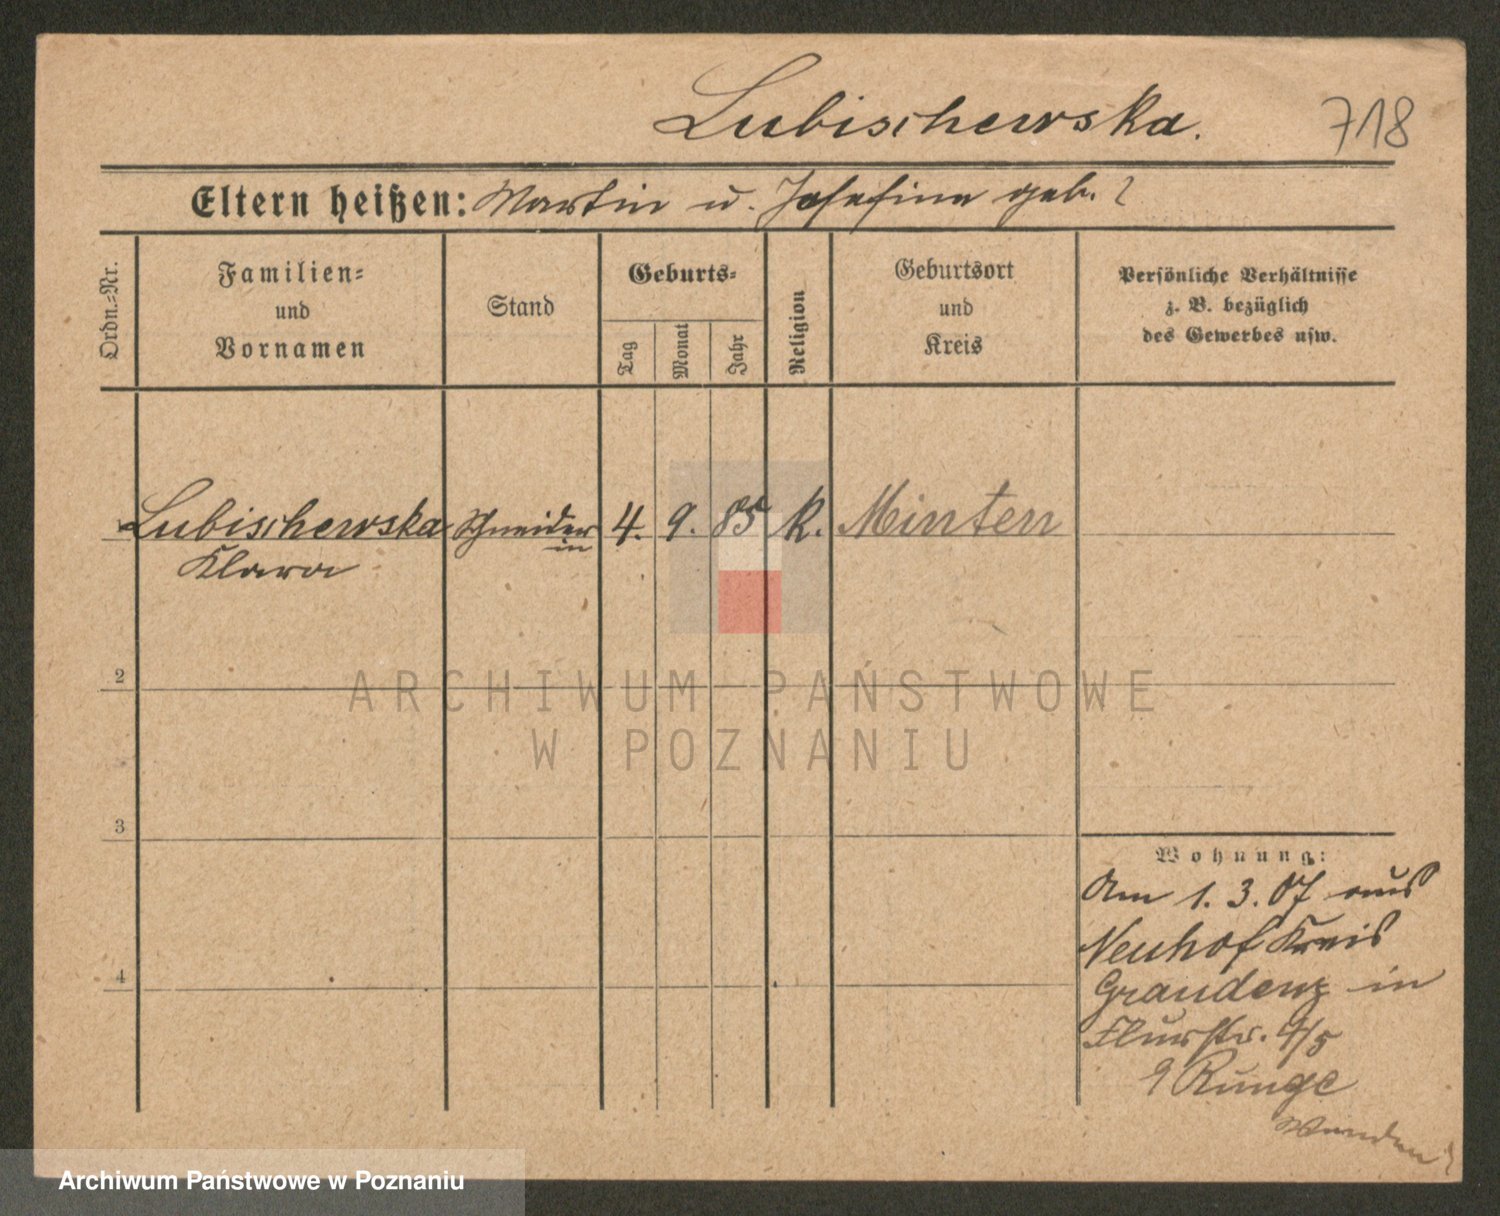 Lubischewska.
718
Eltern heißen: Martin u. Josefine geb. ?
Ordn.=Nr.
Familien=
und
Vornamen
Stand
Geburts=
Tag
Monat
Jahr
Religion
Geburtsort
und
Kreis
Persönliche Verhältnisse
z. B. bezüglich
des Gewerbes usw.
Lubischewska Schneider 4. 9. 85 k. Minten
in
Klara
2
3
4
Wohnung:
Am 1. 3. 07 aus
Neuhof Kreis
Graudenz in
Flurstr. 4/5
Runge
Wenden!
ARCHIWUM PAŃSTWOWE
W POZNANIU
Archiwum Państwowe w Poznaniu